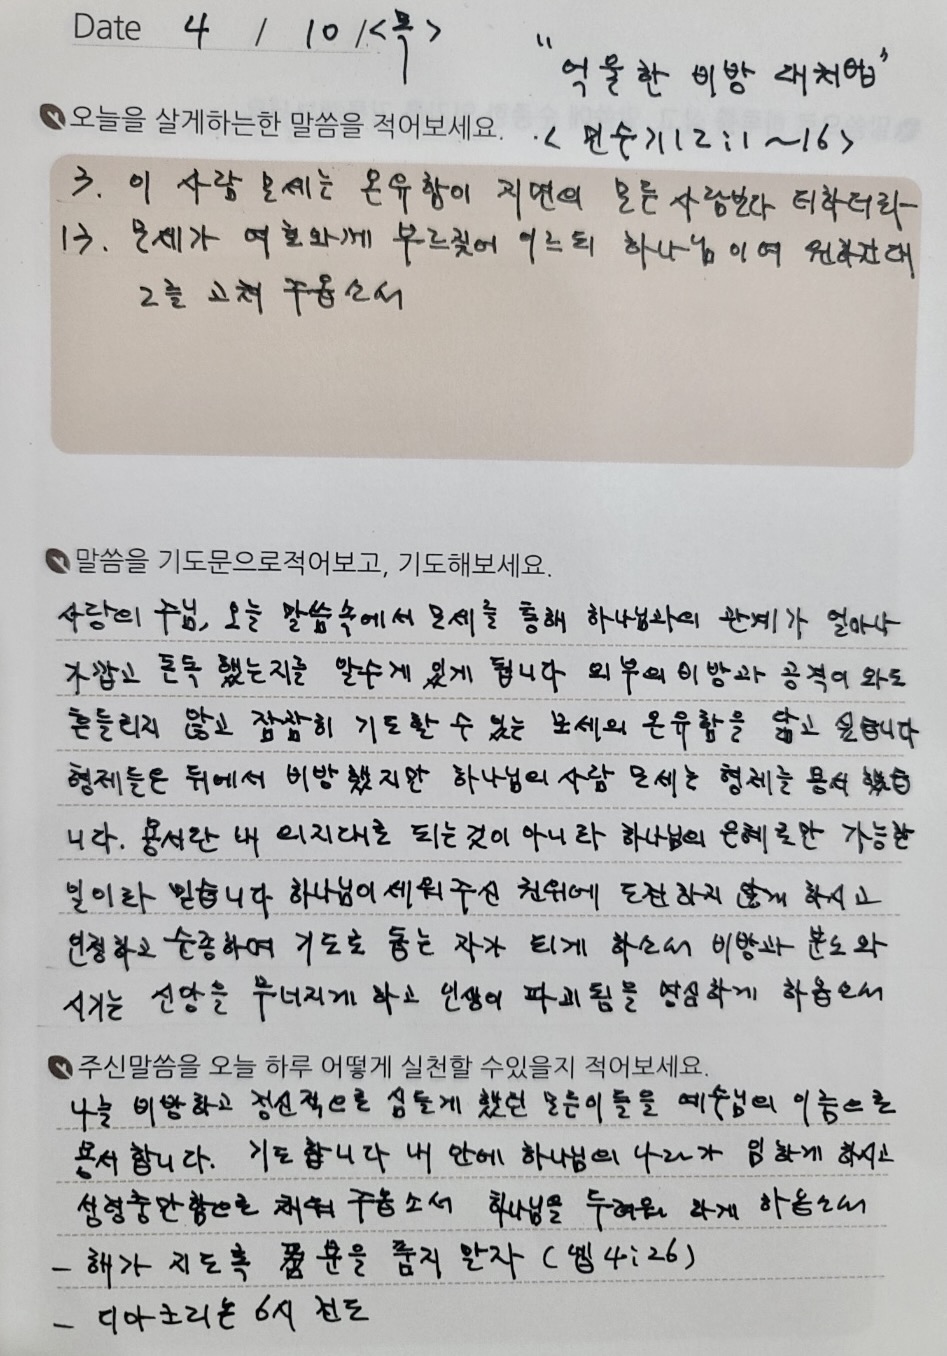 Date 4 / 10 /<목>
"억울한 비방 대처법"
오늘을 살게하는한 말씀을 적어보세요.
<민수기12:1~16>
3. 이 사람 모세는 온유함이 지면의 모든 사람보다 더하더라
13. 모세가 여호와께 부르짖어 이르되 하나님이여 원하건대
그를 고쳐 주옵소서
말씀을 기도문으로적어보고, 기도해보세요.
사랑의 주님, 오늘 말씀속에서 모세를 통해 하나님과의 관계가 얼마나
가깝고 돈독 했는지를 알수게 있게 됩니다 외부의 비방과 공격이 와도
흔들리지 않고 잠잠히 기도할 수 있는 모세의 온유함을 닮고 싶습니다
형제들은 뒤에서 비방했지만 하나님의 사람 모세는 형제를 용서 했습
니다. 용서란 내 의지대로 되는것이 아니라 하나님의 은혜로만 가능한
일이라 믿습니다 하나님이 세워주신 권위에 도전하지 않게 하시고
인정하고 순종하며 기도로 돕는 자가 되게 하소서 비방과 분노와
시기는 신앙을 무너지게 하고 인생이 파괴됨을 명심하게 하옵소서
주신말씀을 오늘 하루 어떻게 실천할 수있을지 적어보세요.
나를 비방하고 정신적으로 힘들게 했던 모든이들을 예수님의 이름으로
용서합니다. 기도합니다 내 안에 하나님의 나라가 임하게 하시고
성령충만함으로 채워 주옵소서 하나님을 두려워 하게 하옵소서
- 해가 지도록 분을 품지 말자 (엡4:26)
- 디아코리는 6시 전도